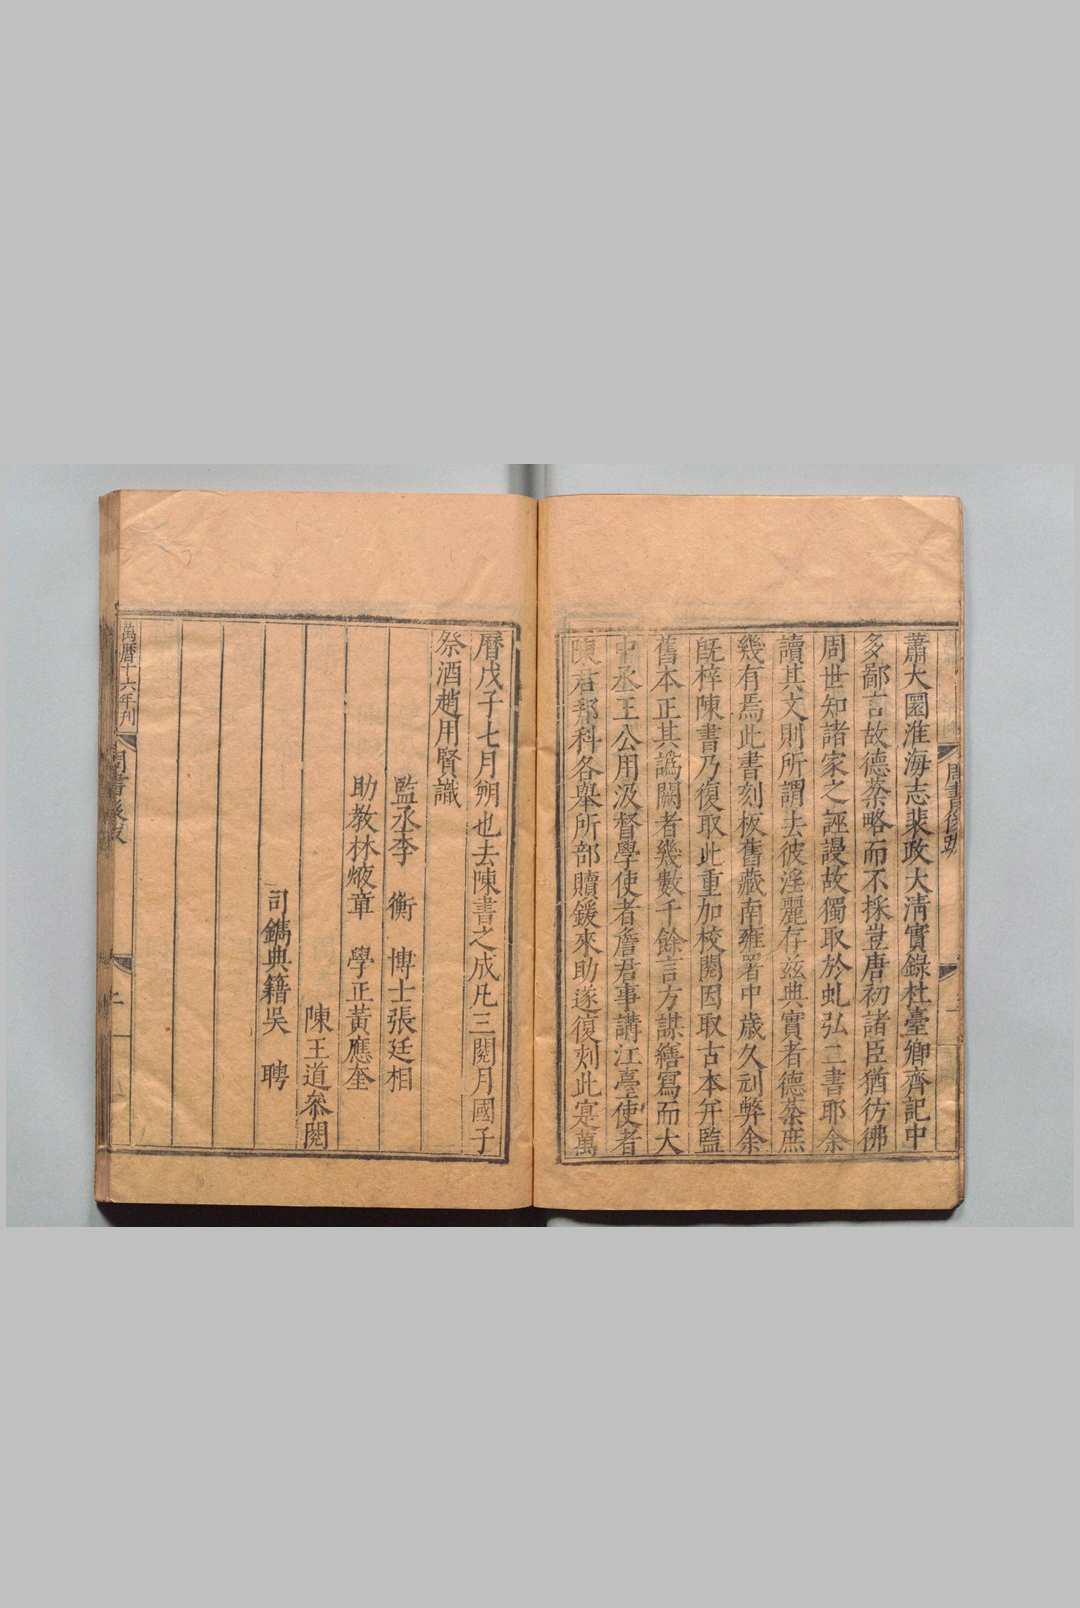 蕭大圜淮海志裴政大清實錄杜臺卿齊記中
多鄙言故德棻略而不採豈唐初諸臣猶彷彿
周世知諸家之誣謾故獨取於虬弘二書耶余
讀其文則所謂去彼淫麗存玆典實者德棻庶
幾有焉此書刻板舊藏南雍署中歲久刓弊余
旣梓陳書乃復取此重加校閱因取古本并監
舊本正其譌闕者幾數千餘言方謀繕寫而大
中丞王公用汲督學使者詹君事講江臺使者
陳君邦科各舉所部贖鍰來助遂復刻此寔萬
曆戊子七月朔也去陳書之成凡三閱月國子
祭酒趙用賢識
監丞李 衡 博士張廷相
助教林 章 學正黃應奎
陳王道叅閱
司鐫典籍吳 聘
萬曆十六年刊 周書後